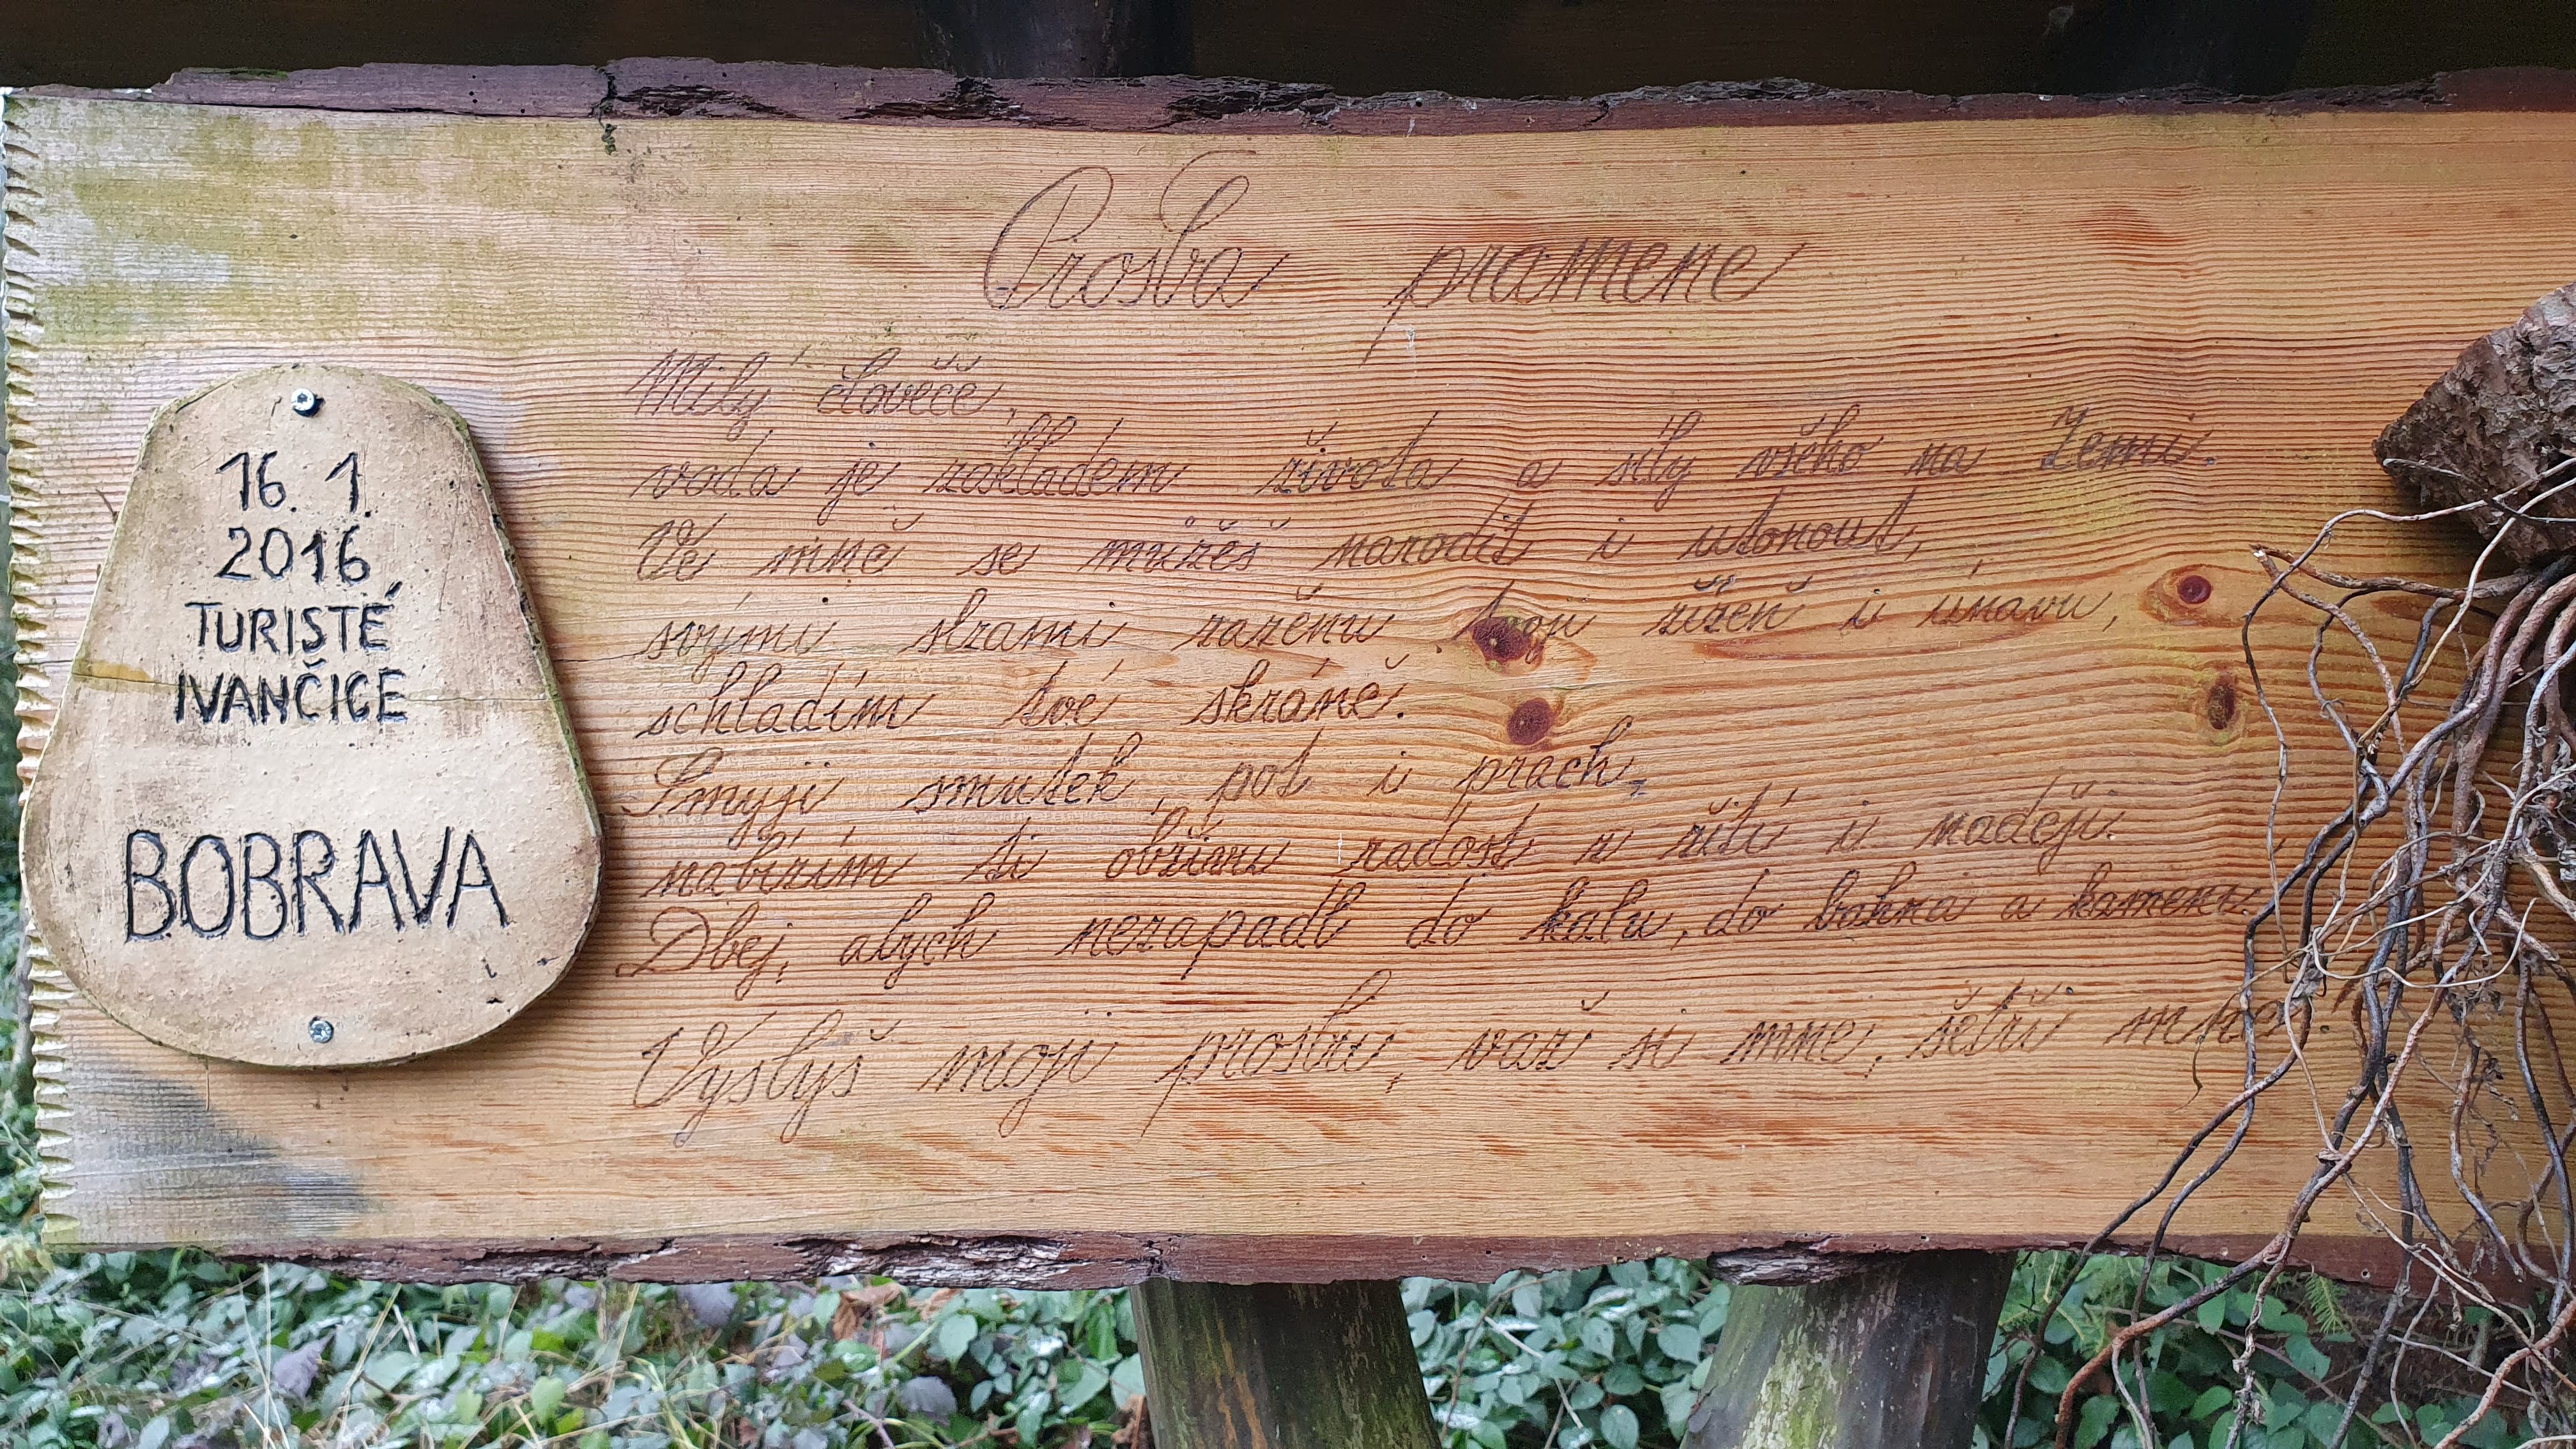 16. 1.
2016
TURISTÉ
IVANČICE
BOBRAVA
Prosba pramene
Milý člověče,
voda je základem života a síly všeho na Zemi.
Ve mně se můžeš narodit i utonout,
svými slzami zaženu tvoji žízeň i únavu,
schladím tvé skráně.
Smyji smutek, pot i prach,
nabízím ti obživu radost z žití i naději.
Dbej, abych nezapadl do kalu, do bahna a kamení.
Vyslyš moji prosbu, važ si mne, šetři mne.